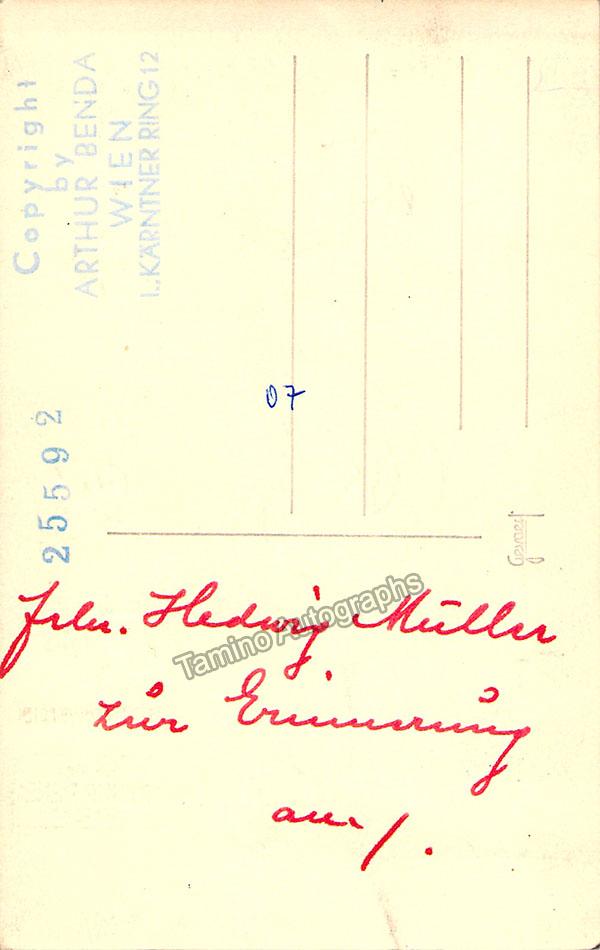 Copyright
by
ARTHUR BENDA
WIEN
I., KÄRNTNER RING 12
25592
07
Gevaert
Frln. Hedwig Müller
zur Erinnerung
an /.
Tamino Autographs